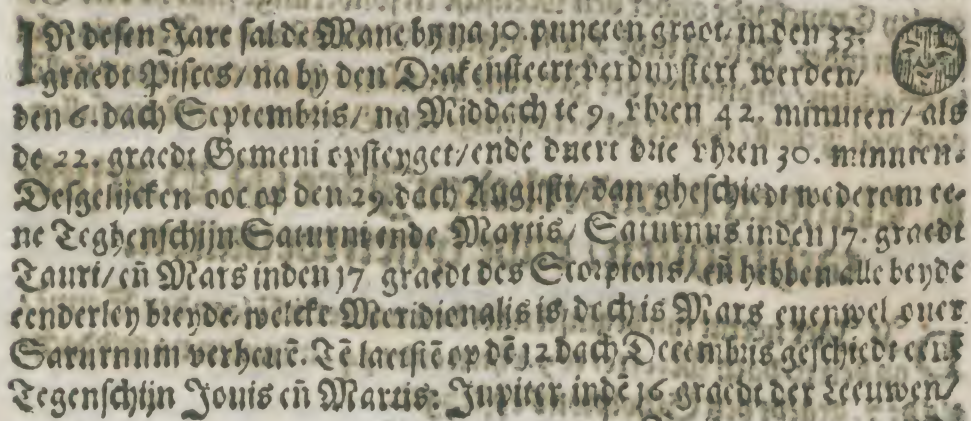 IN desen Jare sal de Mane by na 10. puncten groot/ in den 33.
graedt Pisces/ na by den Drakensteert verduystert werden/
den 6. dach Septembris/ na Middach te 9. vhren 42. minuten/ als
de 22. graedt Gemeni opstenget/ ende duert drie vhren 30. minuten.
Desgelijcken ooc op den 29. dach Augusti/ dan gheschiedt wederom ee-
ne Teghenschijn Saturni ende Martis/ Saturnus in den 17. graedt
Tauri/ eñ Mars inden 17 graedt des Scorpions/ eñ hebben alle beyde
eenderley breyde/ welcke Meridionalis is/ doch is Mars euenwel ouer
Saturnum verheuē. Tē laetstē op dē 12. dach Decembris geschiedt eene
Tegenschijn Jouis eñ Martis: Jupiter indē 16 graedt der Leeuwen/